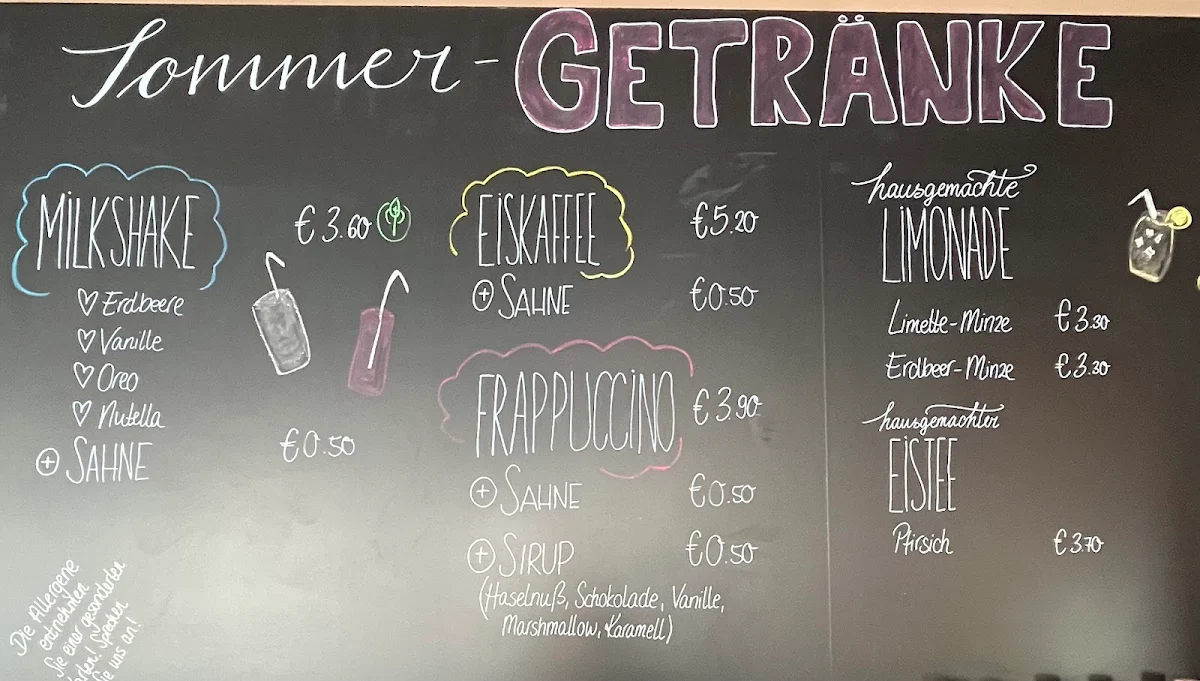 Sommer-GETRÄNKE
MILKSHAKE €3.60
Erdbeere
Vanille
Oreo
Nutella
+ SAHNE €0.50
Die Allergene
entnehmen
Sie einer gesonderten
Sprechen
Sie uns an!
EISKAFFEE €5.20
+ SAHNE €0.50
FRAPPUCCINO €3.90
+ SAHNE €0.50
+ SIRUP €0.50
(Haselnuß, Schokolade, Vanille,
Marshmallow, Karamell)
hausgemachte
LIMONADE
Limette-Minze €3.30
Erdbeer-Minze €3.30
hausgemachter
EISTEE
Pfirsich €3.70